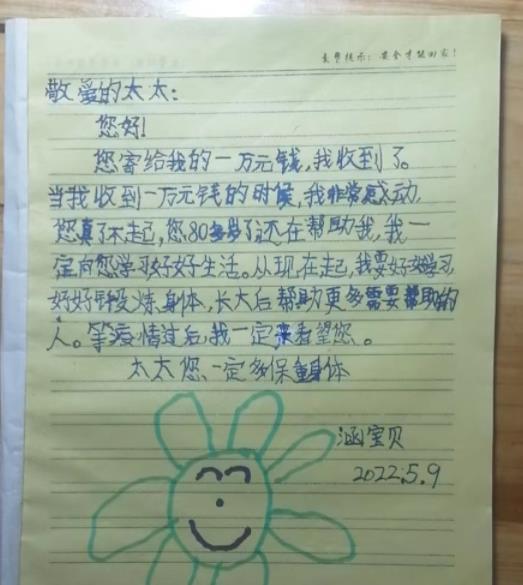 友警提示：安全才能回家！
敬爱的太太：
您好！
您寄给我的一万元钱，我收到了。
当我收到一万元钱的时候，我非常感动，
您真了不起，您80多岁了还在帮助我，我一
定向您学习好好生活。从现在起，我要好好学习，
好好锻炼身体，长大后帮助更多需要帮助的
人。等疫情过后，我一定来看望您。
太太您一定多保重身体
涵宝贝
2022.5.9